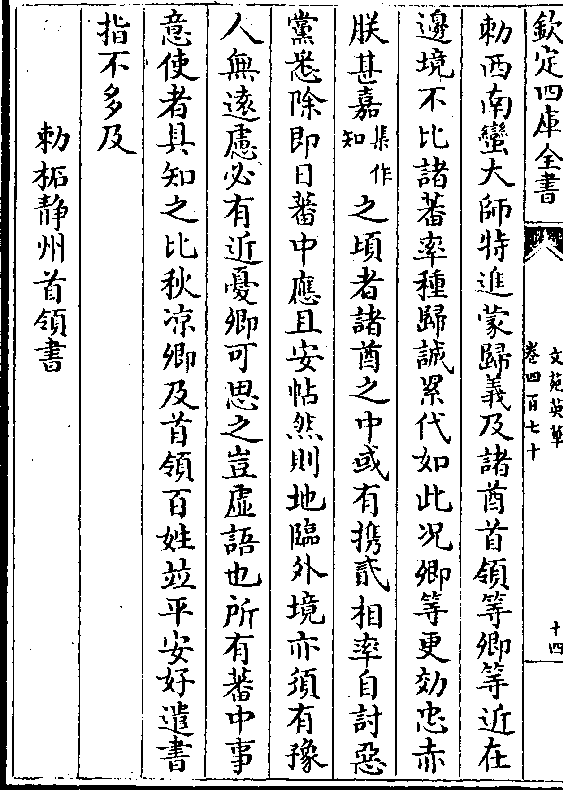 欽定四庫全書
文苑英華
卷四百七十
十四
勅西南蠻大師特進蒙歸義及諸酋首領等卿等近在
邊境不比諸蕃率種歸誠累代如此况卿等更効忠赤
朕甚嘉集作知之頃者諸酋之中或有携貳相率自討惡
黨悉除即日蕃中應且安帖然則地臨外境亦須有豫
人無遠慮必有近憂卿可思之豈虚語也所有蕃中事
意使者具知之比秋凉卿及首領百姓並平安好遣書
指不多及
勅柘静州首領書